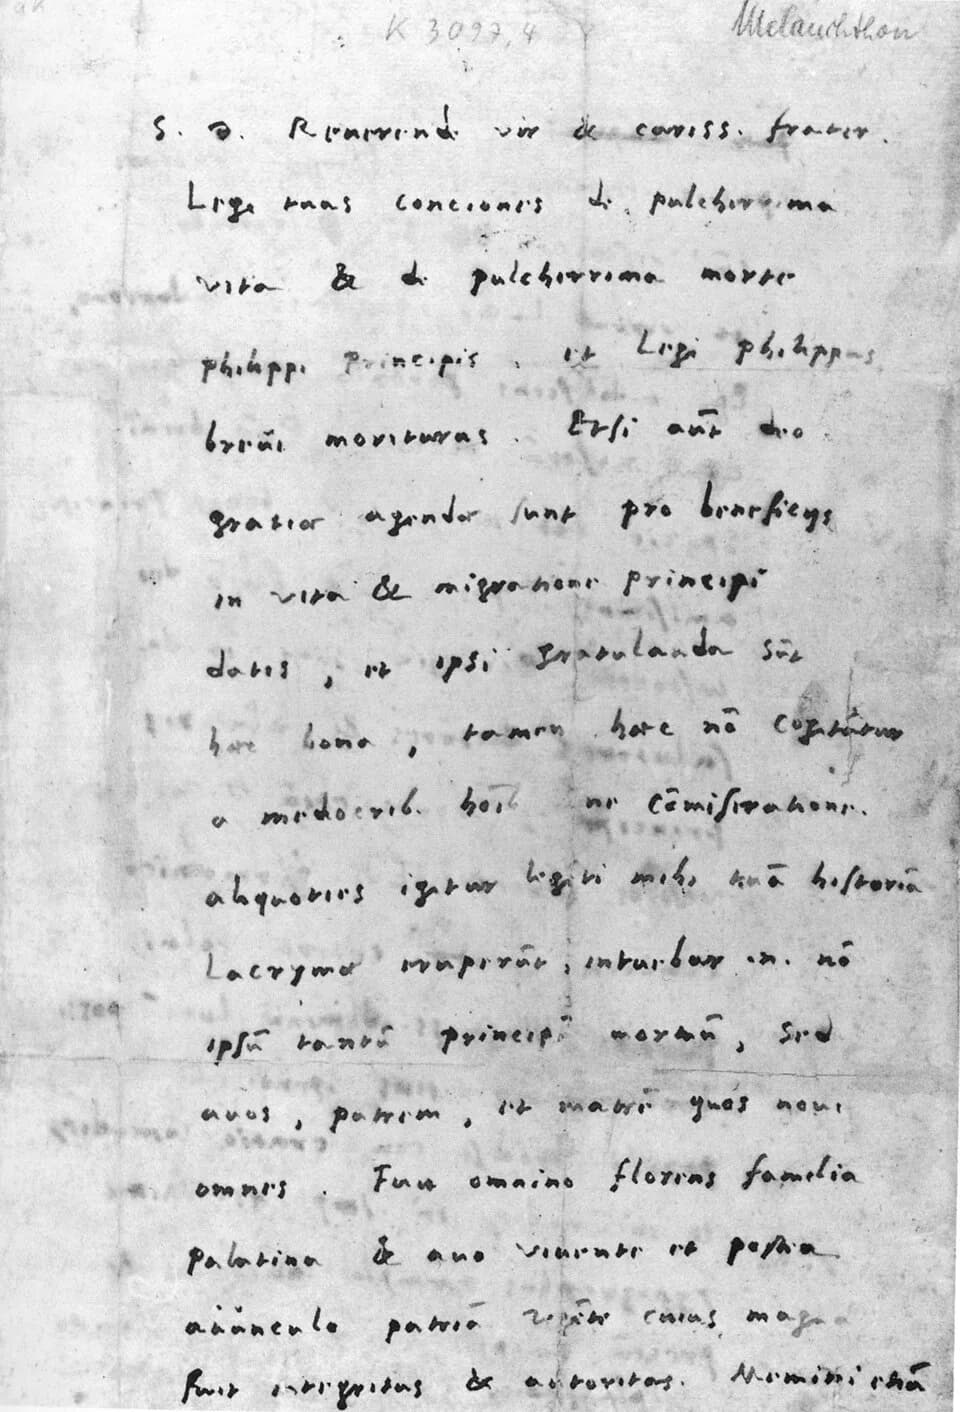 K 3097,4
Melanchthon
S. D. Reuerende vir & cariss. frater.
Legi tuas conciones de pulcherrima
vita & de pulcherrima morte
philippi principis, et Legi philippus
breui moriturus. Etsi aūt deo
gratiæ agendæ sunt pro beneficijs
in vita & migratione principi
datis, et ipsi gratulanda sūt
hæc bona, tamen hæc nō Cogitātur
a mediocrib. hoīb. sine Cōmiseratione.
aliquoties igitur legēti mihi tuā historiā
Lacrymæ eruperūt, intuebar .n. nō
ipsū tantū principē moriētē, Sed
auos, patrem, et matrē quos noui
omnes. Fuit omnino florens familia
palatina & auo viuente et postea
auunculo patriā regēte cuius magna
fuit integritas & autoritas. Memini etiā